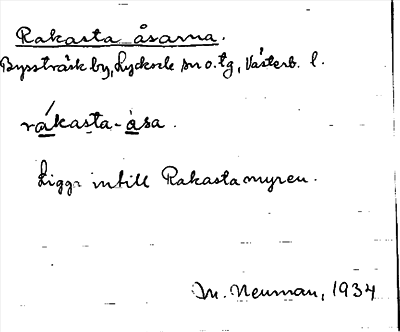 Rakasta åsarna.
Byssträsk by, Lycksele sn o. tg, Västerb. l.
rákasta-åsa.
Ligger intill Rakastamyren.
M. Neuman, 1934